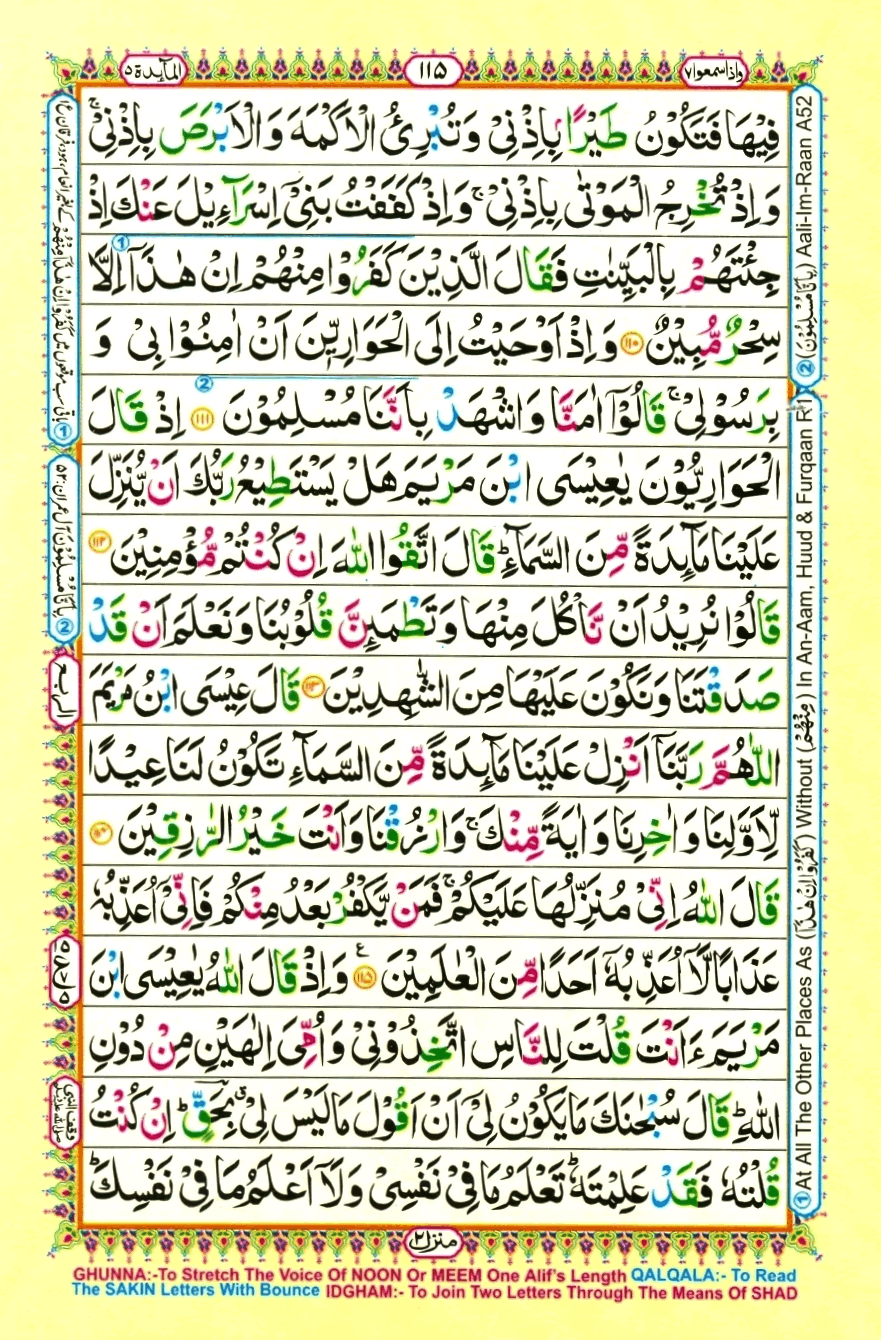 واذاسمعوا۷
۱۱۵
المآىِٕدة ۵
فِیْهَا فَتَكُوْنُ طَیْرًۢا بِاِذْنِیْ وَ تُبْرِئُ الْاَكْمَهَ وَ الْاَبْرَصَ بِاِذْنِیْ ۚ
وَ اِذْ تُخْرِجُ الْمَوْتٰی بِاِذْنِیْ ۚ وَ اِذْ كَفَفْتُ بَنِیْۤ اِسْرَآءِیْلَ عَنْكَ اِذْ
جِئْتَهُمْ بِالْبَیِّنٰتِ فَقَالَ الَّذِیْنَ كَفَرُوْا مِنْهُمْ اِنْ هٰذَاۤ اِلَّا
سِحْرٌ مُّبِیْنٌ ۱۱۰ وَ اِذْ اَوْحَیْتُ اِلَی الْحَوَارِیّٖنَ اَنْ اٰمِنُوْا بِیْ وَ
بِرَسُوْلِیْ ۚ قَالُوْۤا اٰمَنَّا وَ اشْهَدْ بِاَنَّنَا مُسْلِمُوْنَ ۱۱۱ اِذْ قَالَ
الْحَوَارِیُّوْنَ یٰعِیْسَی ابْنَ مَرْیَمَ هَلْ یَسْتَطِیْعُ رَبُّكَ اَنْ یُّنَزِّلَ
عَلَیْنَا مَآىِٕدَةً مِّنَ السَّمَآءِ ؕ قَالَ اتَّقُوا اللّٰهَ اِنْ كُنْتُمْ مُّؤْمِنِیْنَ ۱۱۲
قَالُوْا نُرِیْدُ اَنْ نَّاْكُلَ مِنْهَا وَ تَطْمَىِٕنَّ قُلُوْبُنَا وَ نَعْلَمَ اَنْ قَدْ
صَدَقْتَنَا وَ نَكُوْنَ عَلَیْهَا مِنَ الشّٰهِدِیْنَ ۱۱۳ قَالَ عِیْسَی ابْنُ مَرْیَمَ
اللّٰهُمَّ رَبَّنَاۤ اَنْزِلْ عَلَیْنَا مَآىِٕدَةً مِّنَ السَّمَآءِ تَكُوْنُ لَنَا عِیْدًا
لِّاَوَّلِنَا وَ اٰخِرِنَا وَ اٰیَةً مِّنْكَ ۚ وَ ارْزُقْنَا وَ اَنْتَ خَیْرُ الرّٰزِقِیْنَ ۱۱۴
قَالَ اللّٰهُ اِنِّیْ مُنَزِّلُهَا عَلَیْكُمْ ۚ فَمَنْ یَّكْفُرْ بَعْدُ مِنْكُمْ فَاِنِّیْۤ اُعَذِّبُهٗ
عَذَابًا لَّاۤ اُعَذِّبُهٗۤ اَحَدًا مِّنَ الْعٰلَمِیْنَ ۱۱۵ ع وَ اِذْ قَالَ اللّٰهُ یٰعِیْسَی ابْنَ
مَرْیَمَ ءَاَنْتَ قُلْتَ لِلنَّاسِ اتَّخِذُوْنِیْ وَ اُمِّیَ اِلٰهَیْنِ مِنْ دُوْنِ
اللّٰهِ ؕ قَالَ سُبْحٰنَكَ مَا یَكُوْنُ لِیْۤ اَنْ اَقُوْلَ مَا لَیْسَ لِیْ ۗ بِحَقٍّ ؕ اِنْ كُنْتُ
قُلْتُهٗ فَقَدْ عَلِمْتَهٗ ؕ تَعْلَمُ مَا فِیْ نَفْسِیْ وَ لَاۤ اَعْلَمُ مَا فِیْ نَفْسِكَ ؕ
منزل۲
① At All The Other Places As (كَفَرُوْا اِنْ هٰذَاۤ) Without (مِنْهُمْ) In An-Aam, Huud & Furqaan R1
② (بِاَنَّا مُسْلِمُوْنَ) Aali-Im-Raan A52
② بِاَنَّا مُسْلِمُوْنَ آل عمران: ۵۲
الربع
GHUNNA:-To Stretch The Voice Of NOON Or MEEM One Alif's Length QALQALA:- To Read
The SAKIN Letters With Bounce IDGHAM:- To Join Two Letters Through The Means Of SHAD